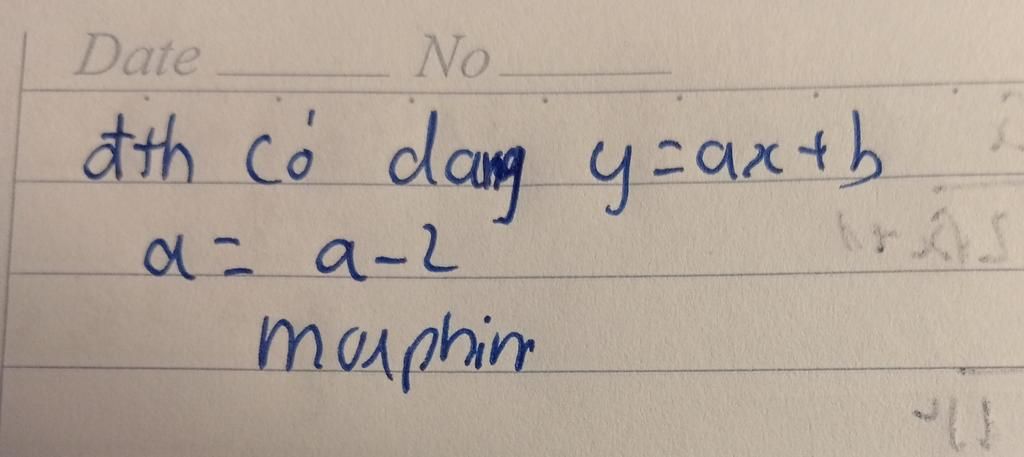 Date No
đth có dang y=ax+b
a= a-2
morphin